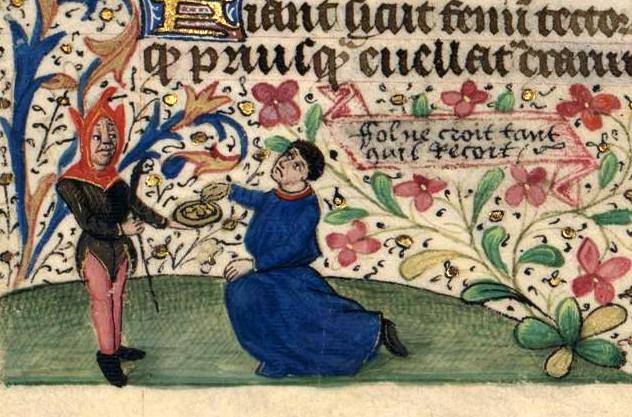 Fiant sicut fenū tector
qͦ priusq̄ euellat᷑ exarui
ffol ne croit tant
quil recoit